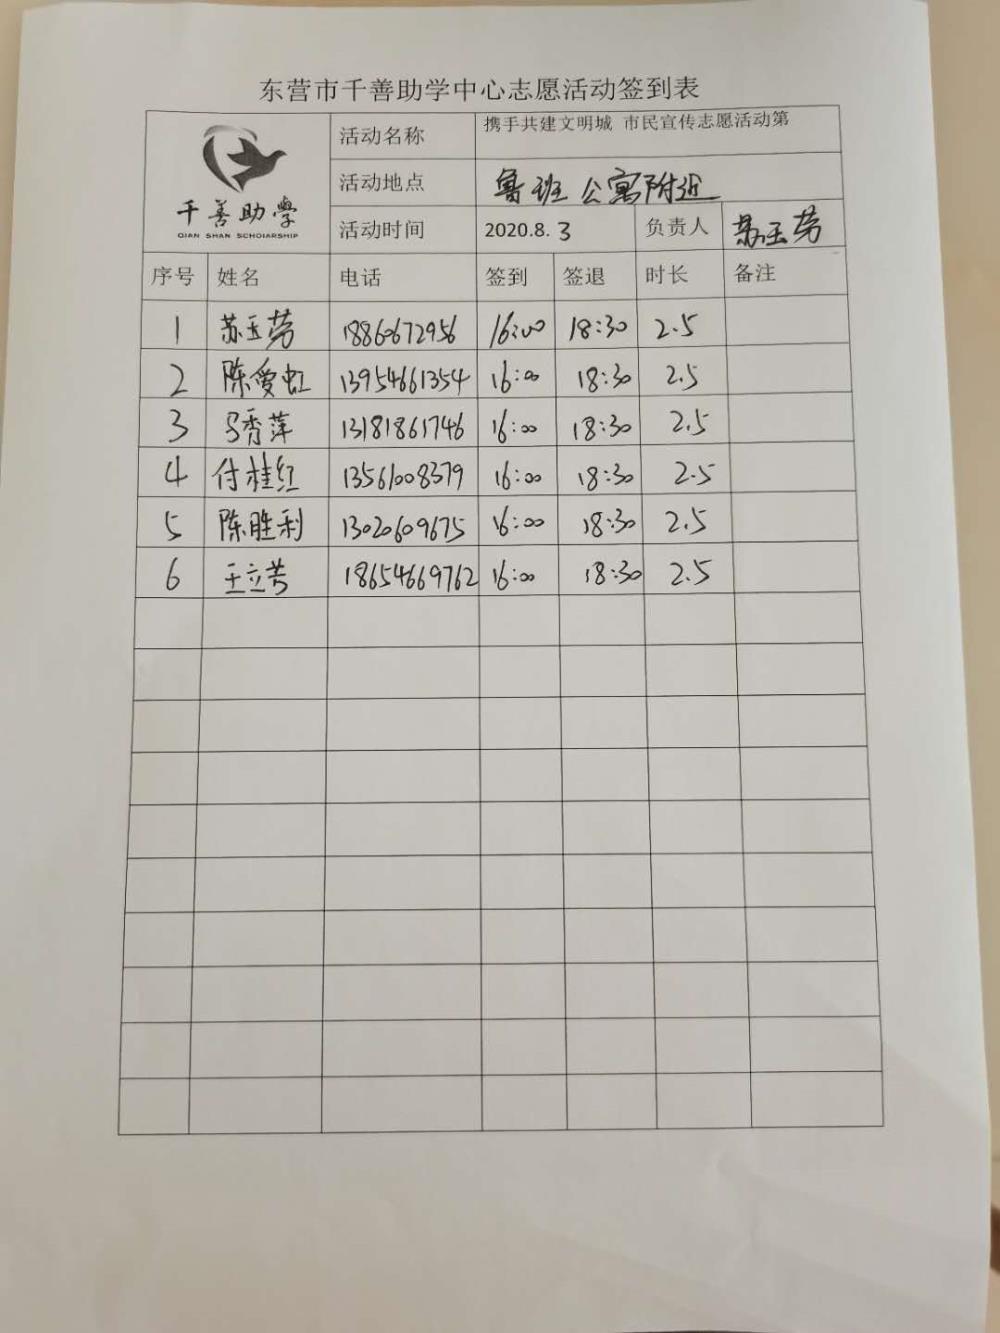 东营市千善助学中心志愿活动签到表
千善助學
QIAN SHAN SCHOIARSHIP
活动名称 携手共建文明城 市民宣传志愿活动第
活动地点 鲁班公寓附近
活动时间 2020.8.3 负责人 苏玉芳
序号 姓名 电话 签到 签退 时长 备注
1 苏玉芳 18860672956 16:00 18:30 2.5
2 陈爱虹 13954661354 16:00 18:30 2.5
3 马秀萍 13181861746 16:00 18:30 2.5
4 付桂红 13561008379 16:00 18:30 2.5
5 陈胜利 13020609675 16:00 18:30 2.5
6 王立芳 18654669762 16:00 18:30 2.5